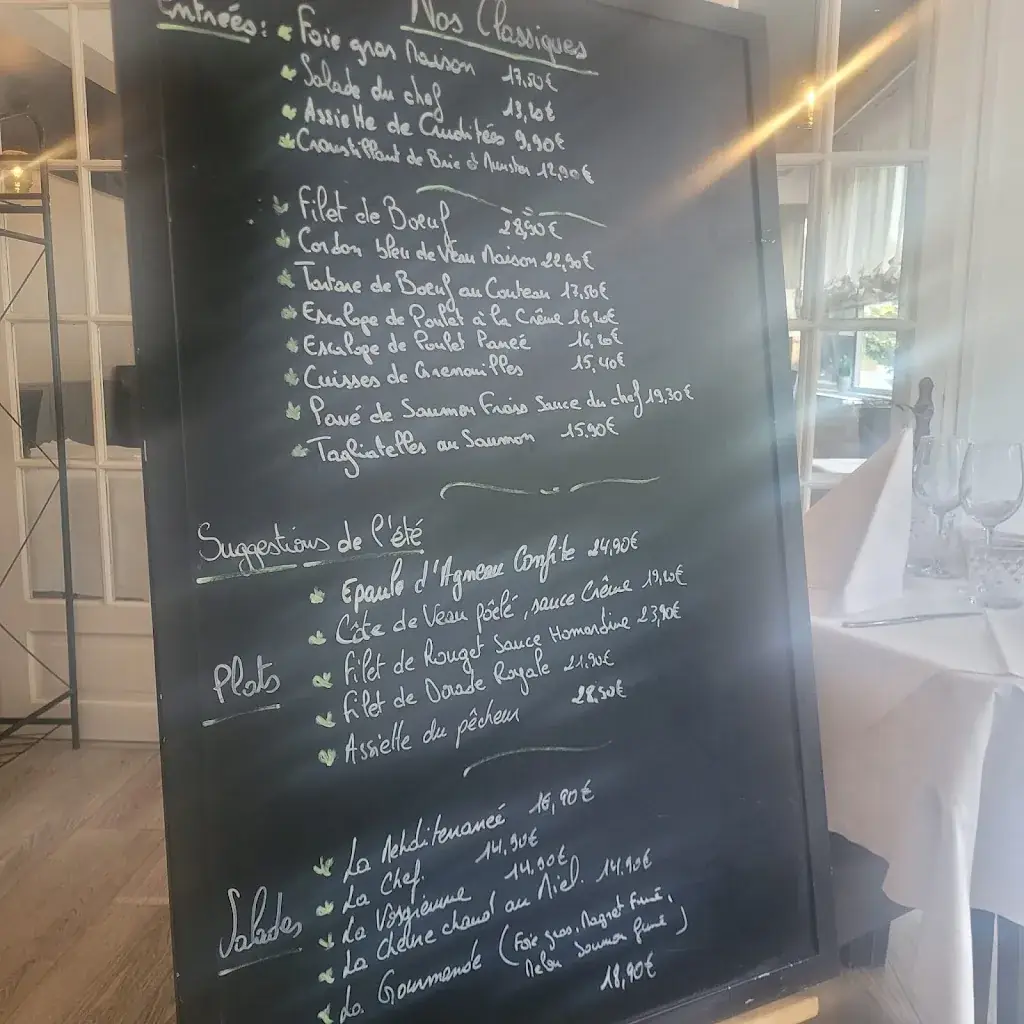 Nos Classiques
Entrées:
Foie gras Maison 17,50€
Salade du chef 13,20€
Assiette de Crudités 9,90€
Croustillant de Brie et Munster 12,90€
Filet de Boeuf 28,90€
Cordon bleu de Veau Maison 22,90€
Tartare de Boeuf au Couteau 17,50€
Escalope de Poulet à la Crème 16,20€
Escalope de Poulet Paneé 16,20€
Cuisses de Grenouilles 15,40€
Pavé de Saumon Frais Sauce du chef 19,30€
Tagliatelles au Saumon 15,90€
Suggestions de l'été
Plats
Epaule d'Agneau Confite 24,90€
Côte de Veau poêlé, sauce Crème 19,20€
Filet de Rouget Sauce Homardine 23,90€
Filet de Dorade Royale 21,90€
Assiette du pêcheur 22,50€
Salades
La Méhditeranéé 16,90€
La Chef. 14,90€
La Vosgienne 14,90€
La chèvre chaud au Miel. 14.90€
La Gourmande (Foie gras, Magret Fumé,
Melon Saumon fumé)
18,90€